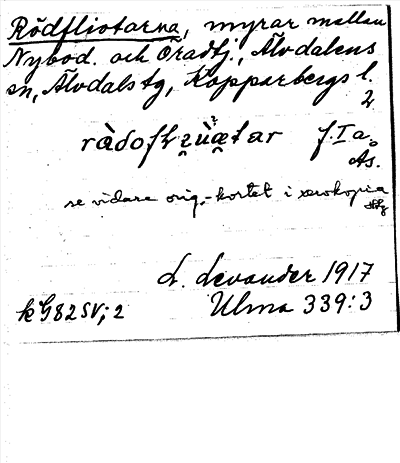 Rödfliotarna, myrar mellan
Nybod. och Oradtj., Älvdalens
sn, Älvdals tg, Kopparbergs l.
2
f. I a.
As.
se vidare orig.-kortet i xerokopia
L. Levander 1917
k G82SV; 2 Ulma 339:3